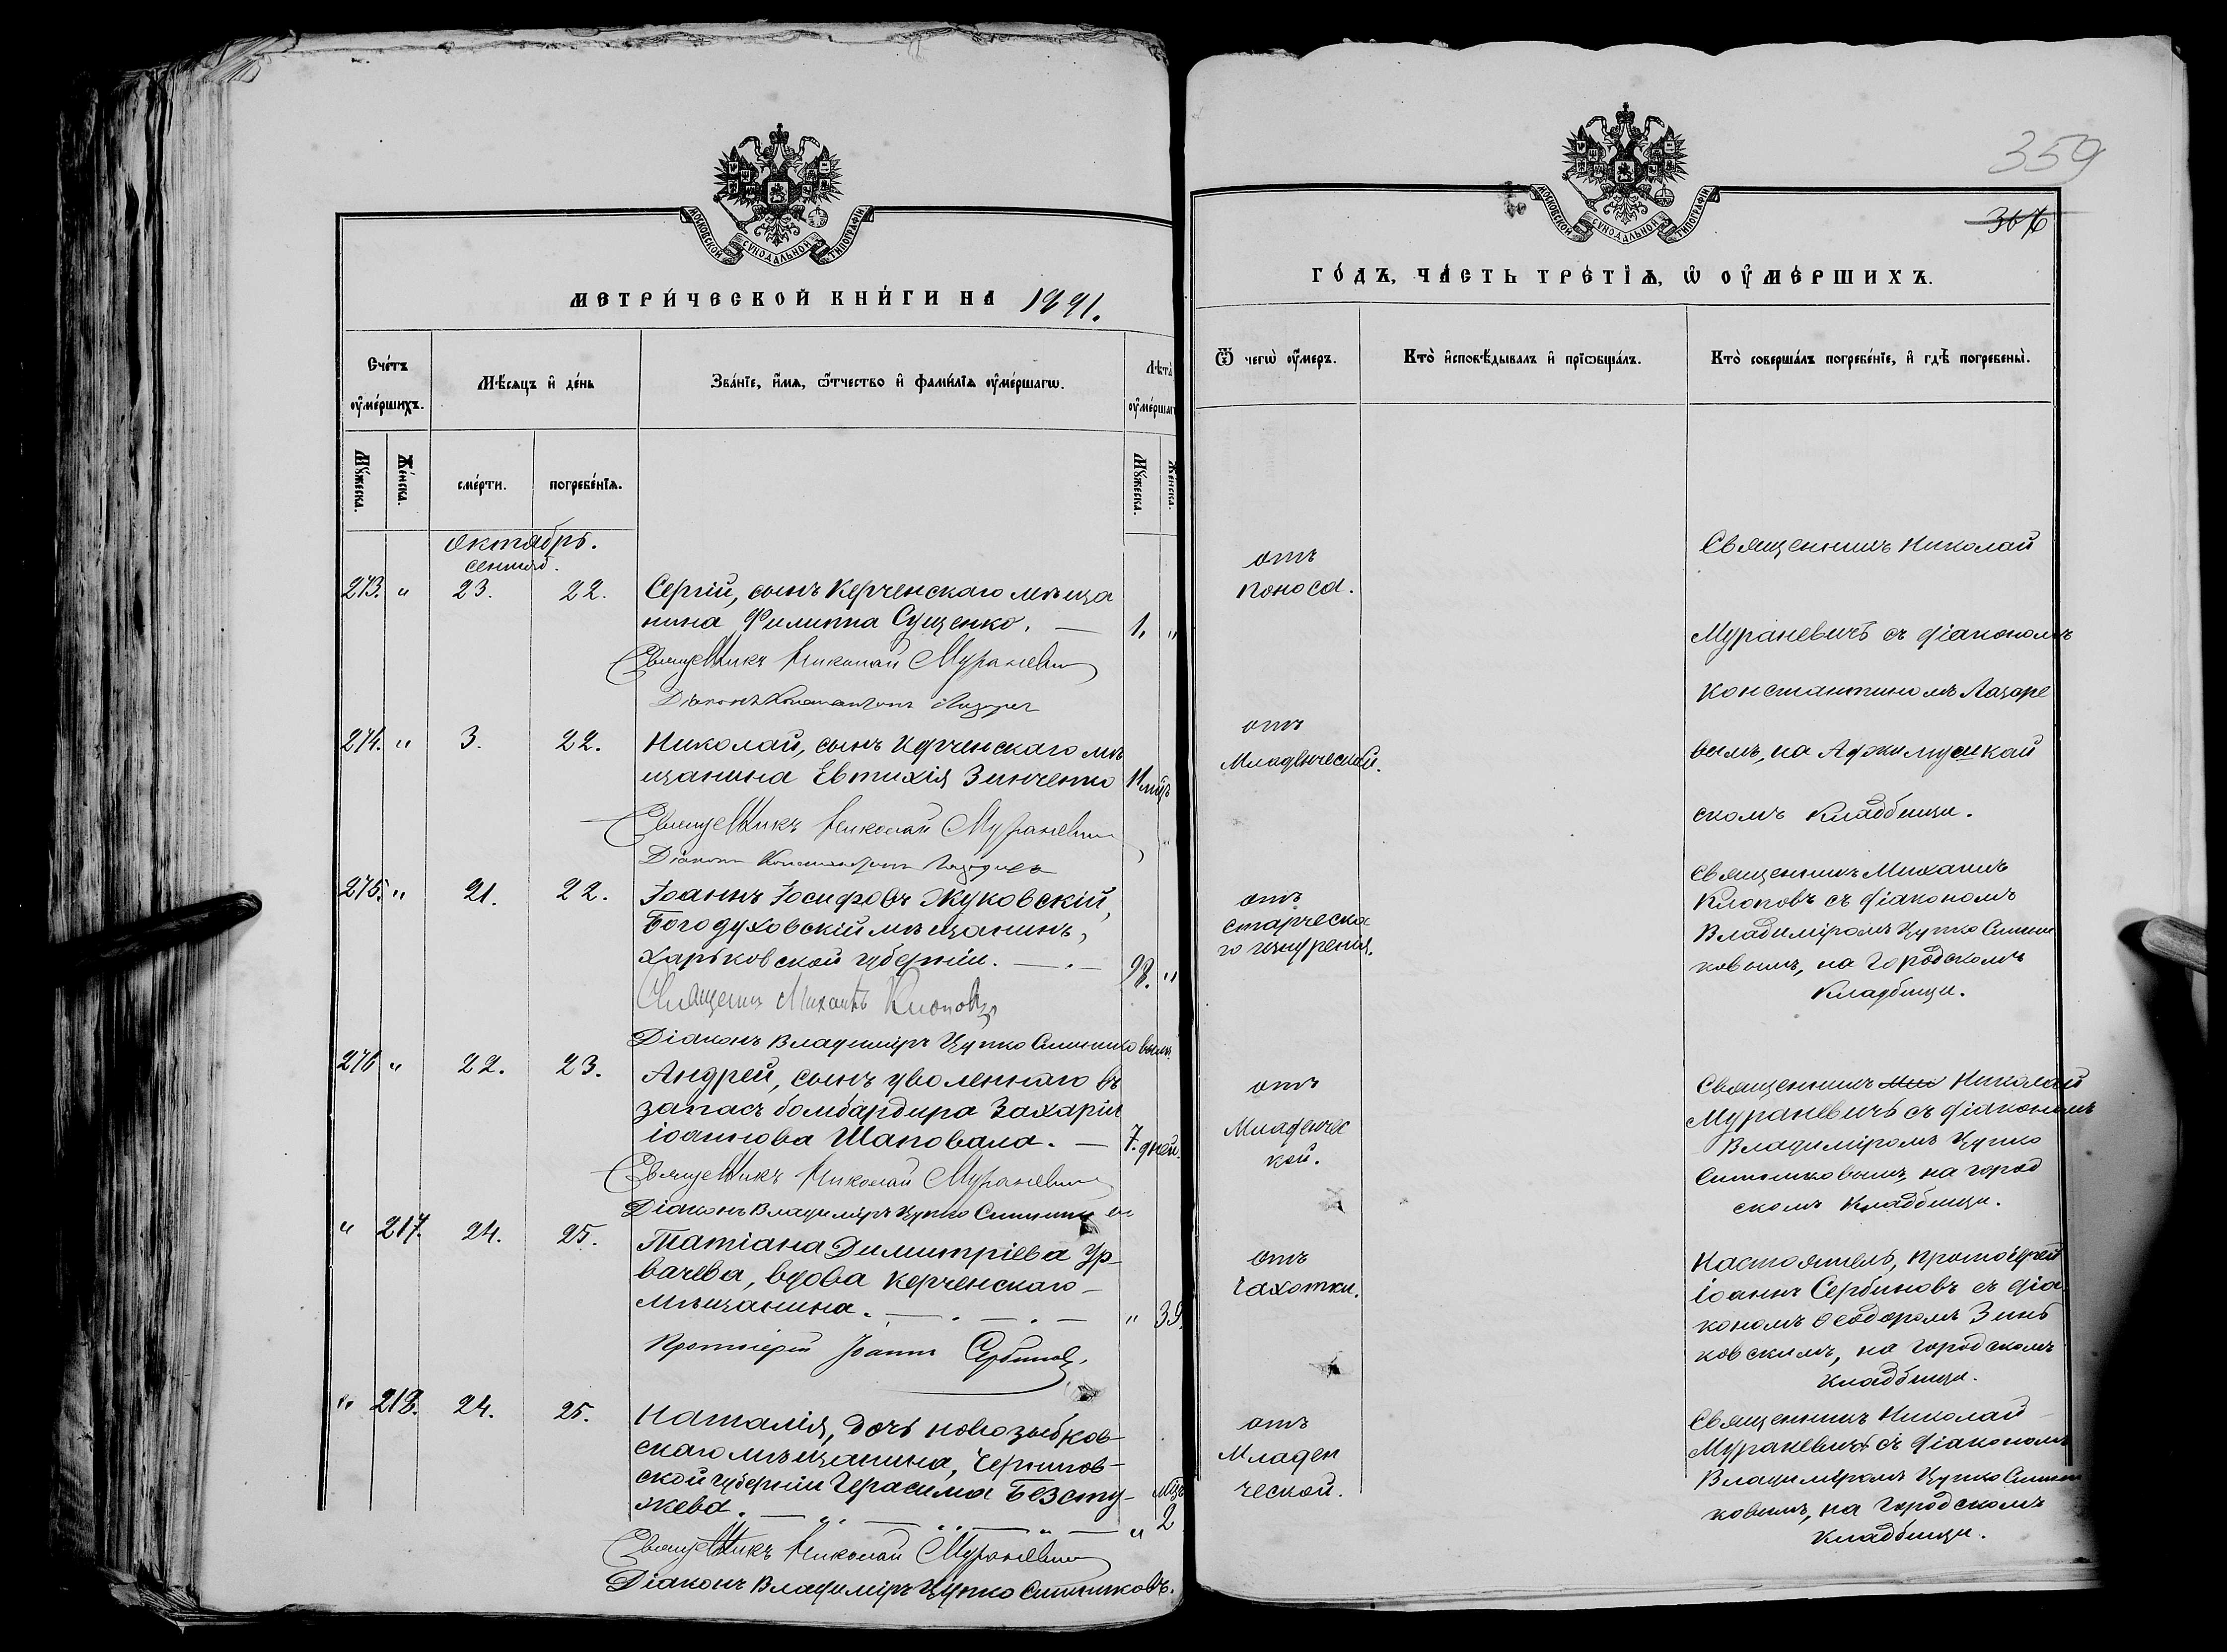 МОСКОВСКОЙ СѴНОДАЛЬНОЙ ТИПОГРАФІИ
МЕТРИ́ЧЕСКОЙ КНИ́ГИ НА 1891.
Сче́тъ ᲂу҆ме́ршихъ.
Мѣ́сяцъ и҆ де́нь
Зва́нїе, и҆́мѧ, ѻ҆́тчество и҆ фами́лїѧ ᲂу҆ме́ршагѡ.
Лѣта̀ ᲂу҆ме́ршаг
Мꙋ́жеска.
Же́нска.
сме́рти.
погребе́нїѧ.
Мꙋ́жеска.
Же́нска.
октябрь.
сентяб.
273. " 23. 22. Сергій, сынъ Керченскаго мѣща
нина Филиппа Сущенко. — 1. "
Священникъ Николай Мураневичъ
Діаконъ Константинъ Лазарев
274. " 3. 22. Николай, сынъ Керченскаго мѣ
щанина Евтихія Зинченко 11 мцъ
Священникъ Николай Мураневичъ
Діаконъ Константинъ Лазарев
275. " 21. 22. Іоаннъ Іосифовъ Жуковскій,
Богодуховскій мѣщанинъ,
Харьковской губерніи. — . — 98. "
Священникъ Михаилъ Клоповъ
Діаконъ Владиміръ Цупко Ситниковъ
276 " 22. 23. Андрей, сынъ уволеннаго въ
запасъ бомбардира Захаріи
Іоаннова Шаповала. — 7. дней.
Священникъ Николай Мураневичъ
Діаконъ Владиміръ Цупко
" 217. 24. 25. Татіана Димитріева Ур
вачева, вдова керченскаго
мѣщанина. — . — . — " 39.
Протоіерей Іоаннъ Сербиновъ.
" 218. 24. 25. Наталія, дочь новозыбков
скаго мѣщанина, Чернигов
ской губерніи Герасима Безсту
жева. — " — " — " — " 2 мѣц
Священникъ Николай Мураневичъ
Діаконъ Владиміръ Цупко Ситниковъ.
359
МОСКОВСКОЙ СѴНОДАЛЬНОЙ ТИПОГРАФІИ
ГО́ДЪ, ЧА́СТЬ ТРЕ́ТЇѦ, Ѡ҆ ОУ҆МЕ́РШИХЪ.
Ѿ чегѡ̀ ᲂу҆́меръ.
Кто̀ и҆сповѣ́дывалъ и҆ прїѡбща́лъ.
Кто̀ соверша́лъ погребе́нїе, и҆ гдѣ̀ погребены̀.
отъ
поноса.
Священникъ Николай
Мураневичъ съ діакономъ
Константиномъ Лазаре
вымъ, на Аджимушкай
скомъ кладбищи.
отъ
Младенческой.
отъ
старческа
го изнуренія.
Священникъ Михаилъ
Клоповъ съ діакономъ
Владиміромъ Цупко Ситни
ковымъ, на городскомъ
кладбищи.
отъ
Младенчес
кой.
Священникъ Николай
Мураневичъ съ діакономъ
Владиміромъ Цупко
Ситниковымъ, на город
скомъ кладбищи.
отъ
чахотки.
Настоятель, протоіерей
Іоаннъ Сербиновъ съ діа
кономъ Ѳеодоромъ Зинь
ковскимъ, на городскомъ
кладбищи.
отъ
Младен
ческой.
Священникъ Николай
Мураневичъ съ діакономъ
Владиміромъ Цупко Ситни
ковымъ, на городскомъ
кладбищи.